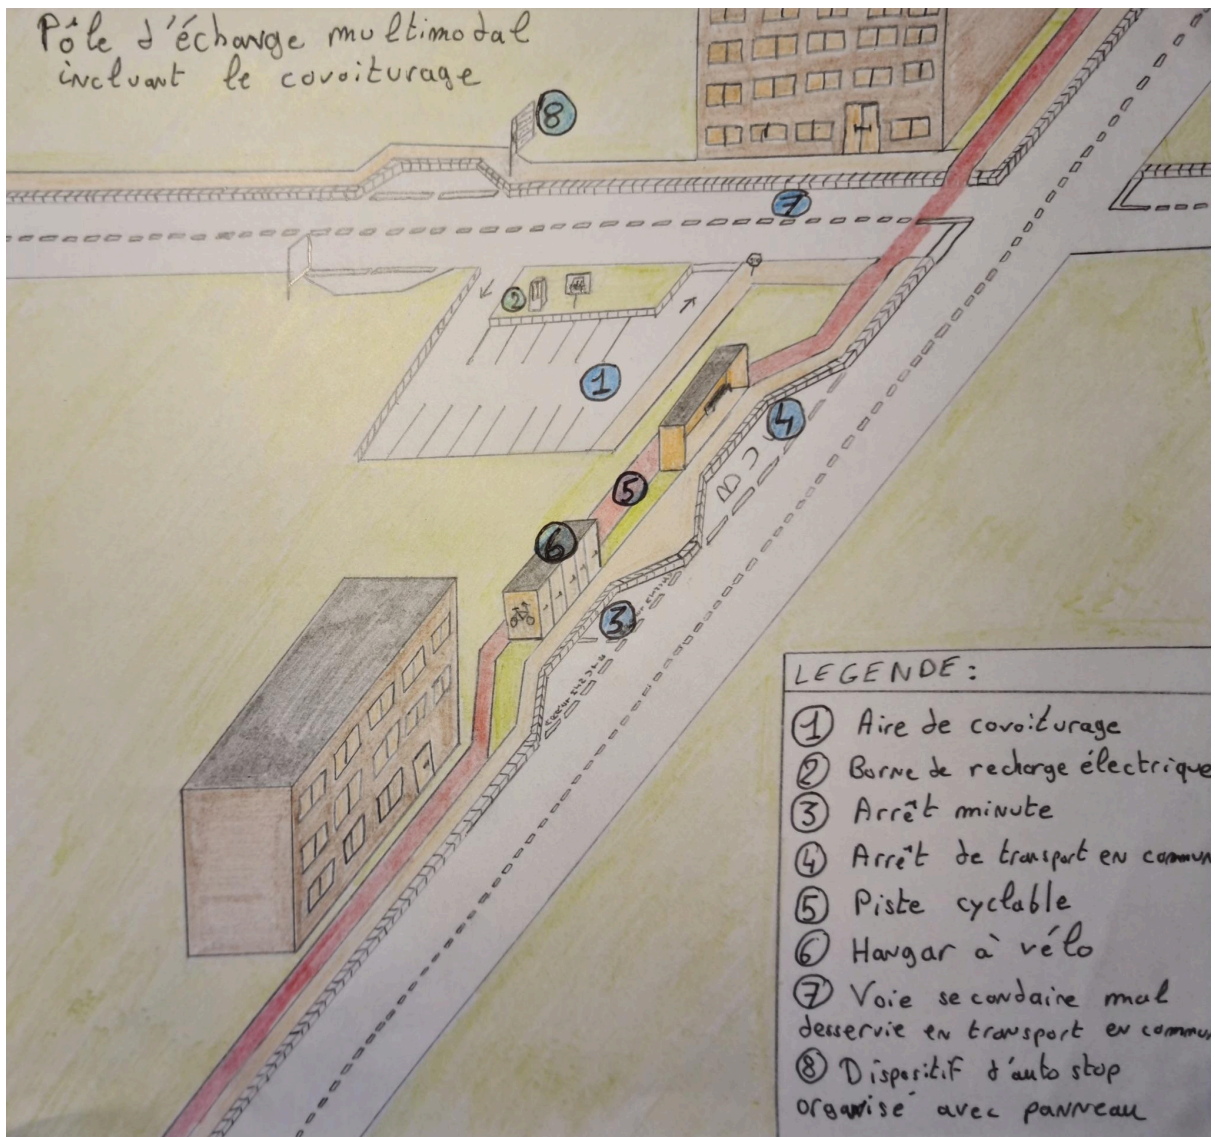 Pôle d'échange multimodal
incluant le covoiturage
8
7
2
1
4
5
6
3
LEGENDE:
1 Aire de covoiturage
2 Borne de recharge électrique
3 Arrêt minute
4 Arrêt de transport en commun
5 Piste cyclable
6 Hangar à vélo
7 Voie secondaire mal
desservie en transport en commun
8 Dispositif d'auto stop
organisé avec panneau